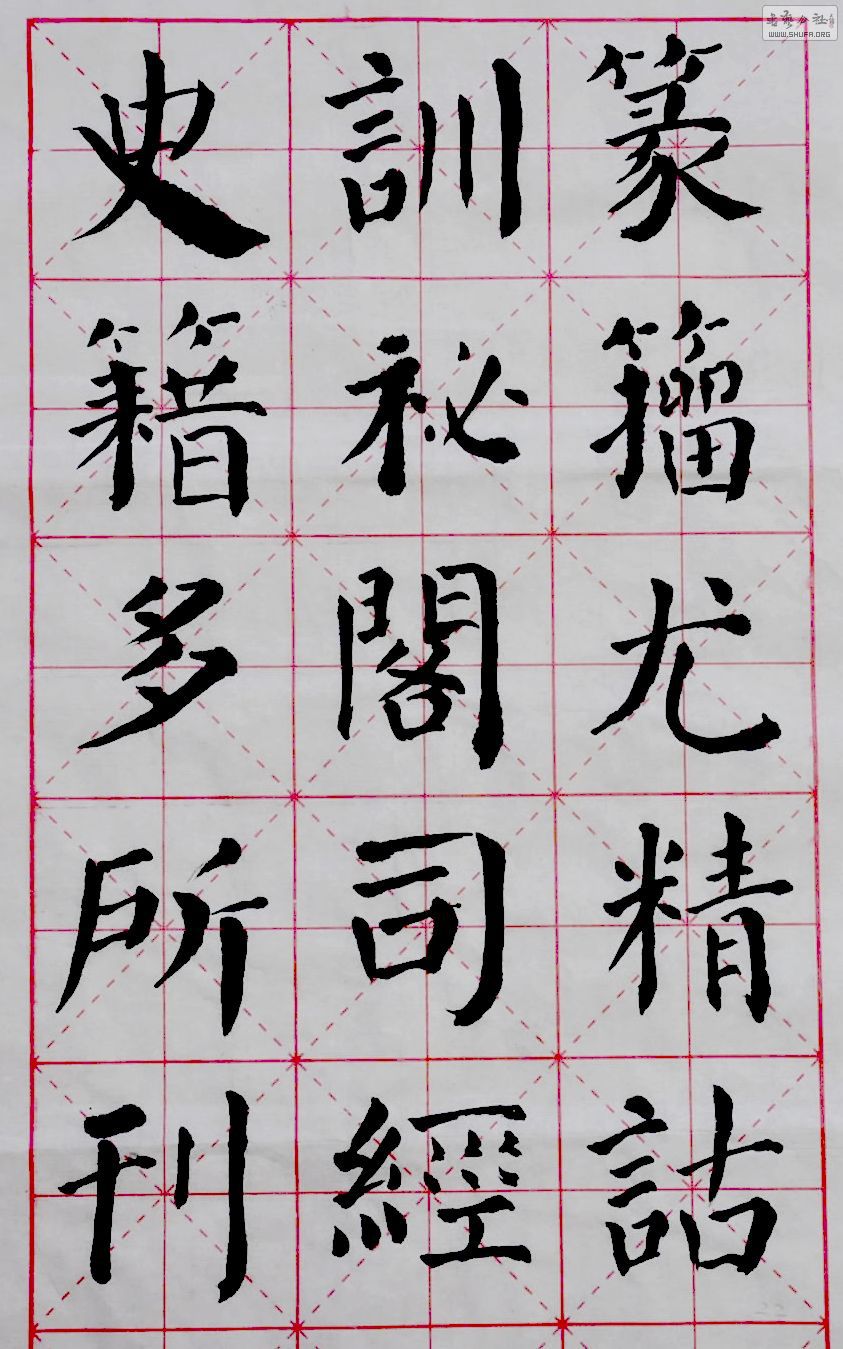 篆籀尤精詁
訓祕閣司經
史籍多所刊
書藝公社
WWW.SHUFA.ORG